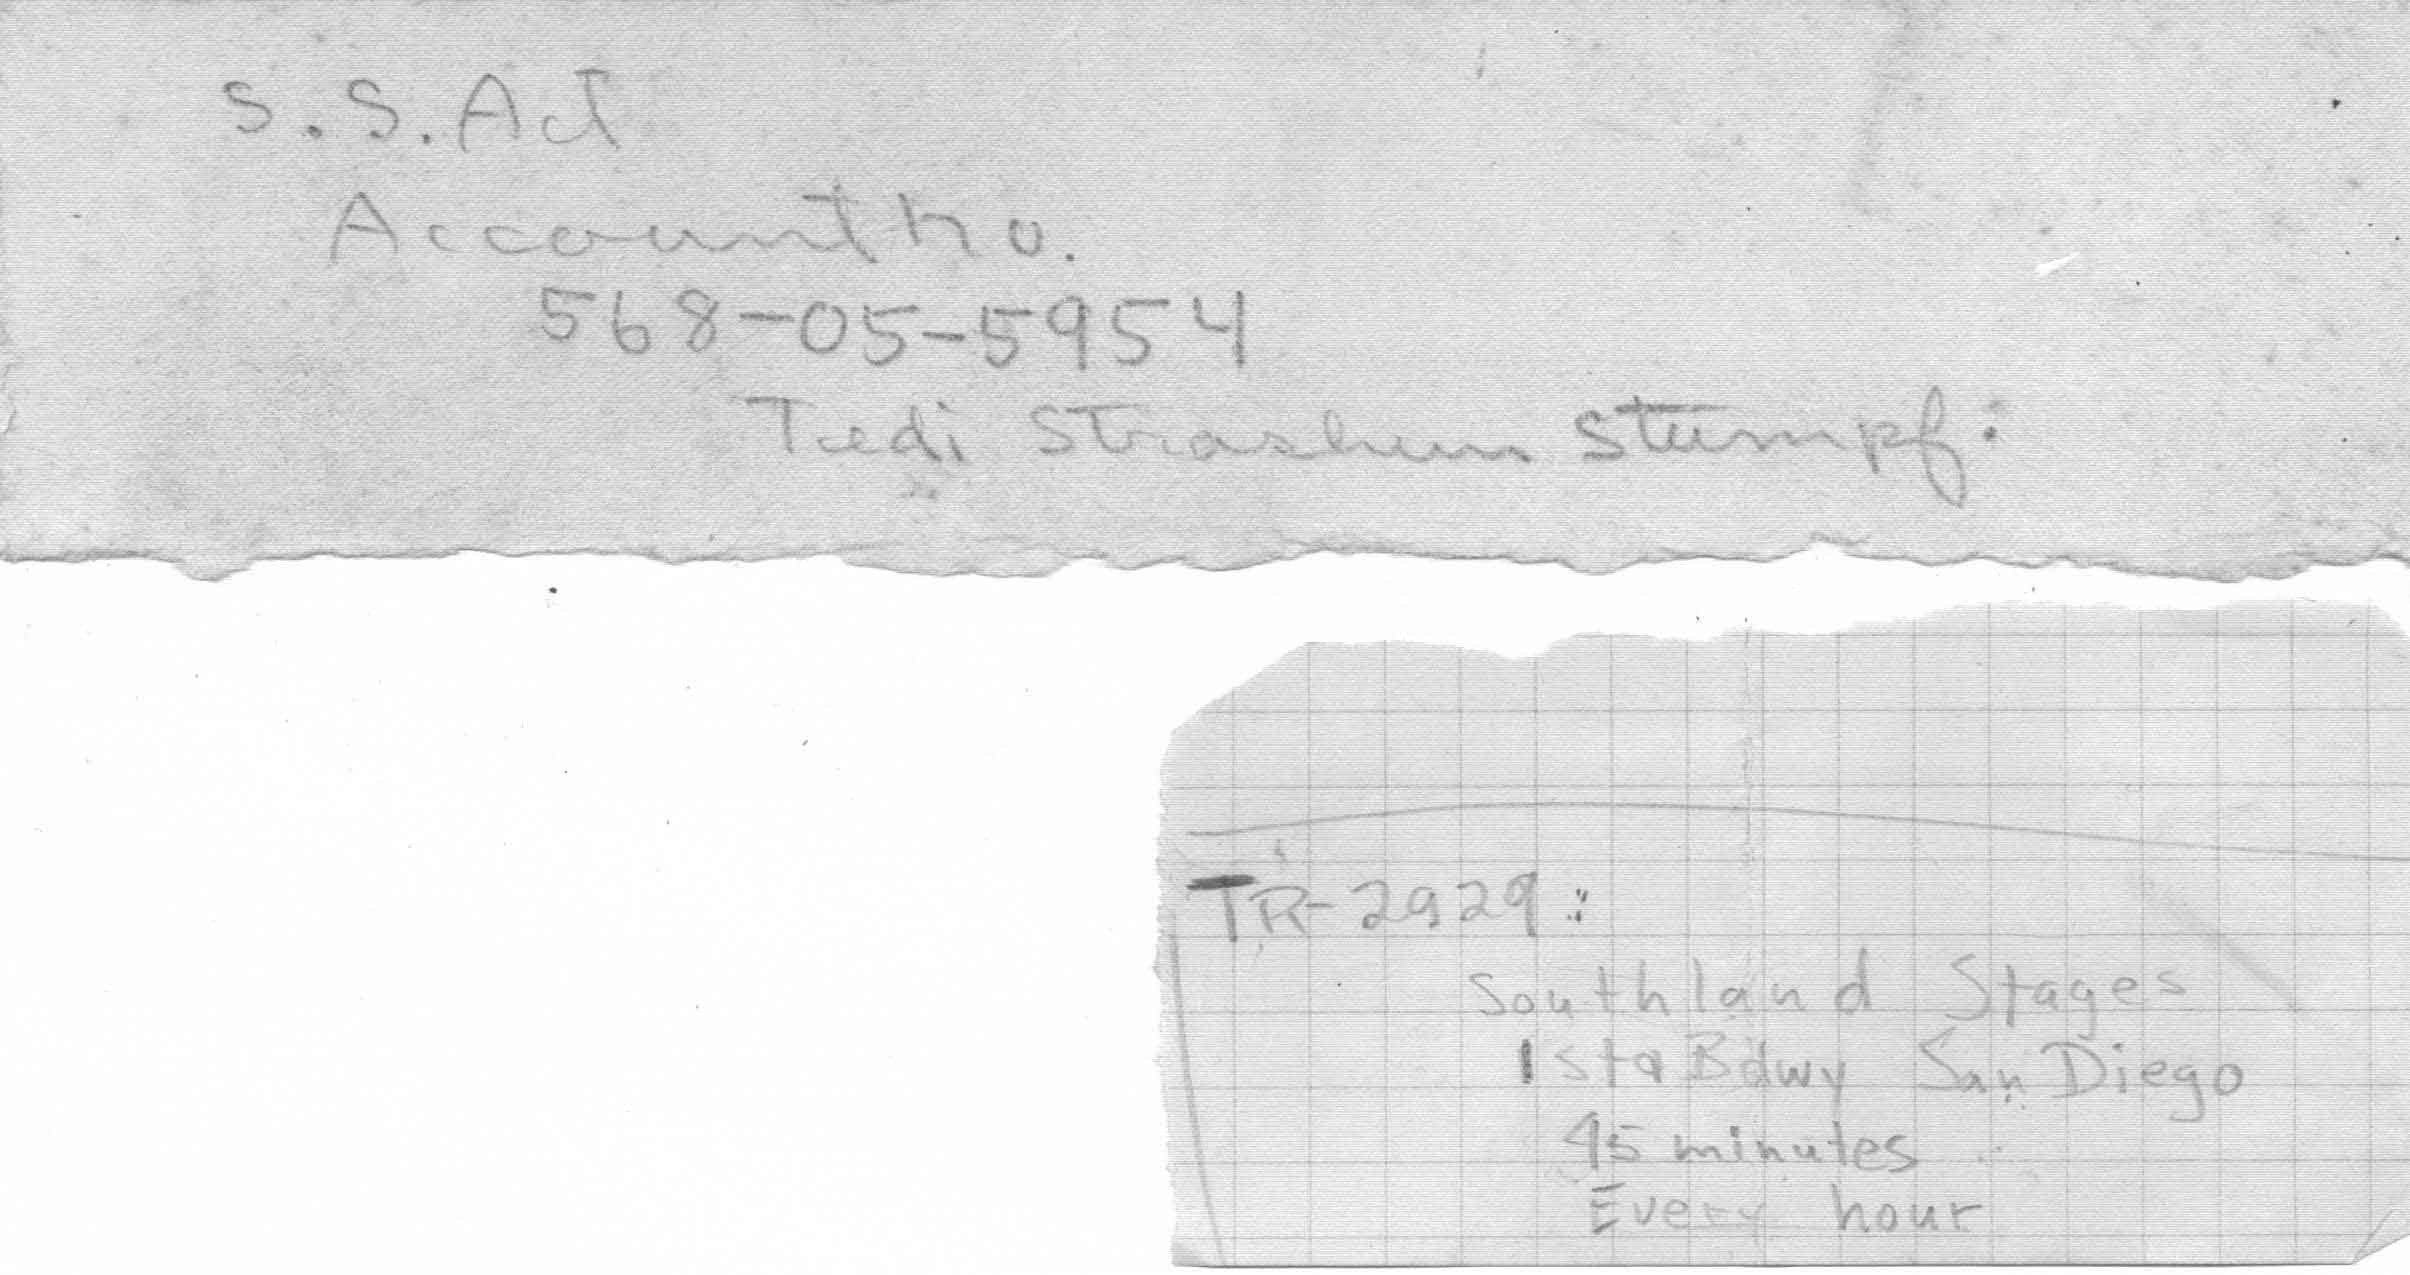 S.S. Act
Account no.
568-05-5954
Tedi Strashun Stumpf:
TR-2929:
Southland Stages
1st a Bdwy San Diego
45 minutes
Every hour